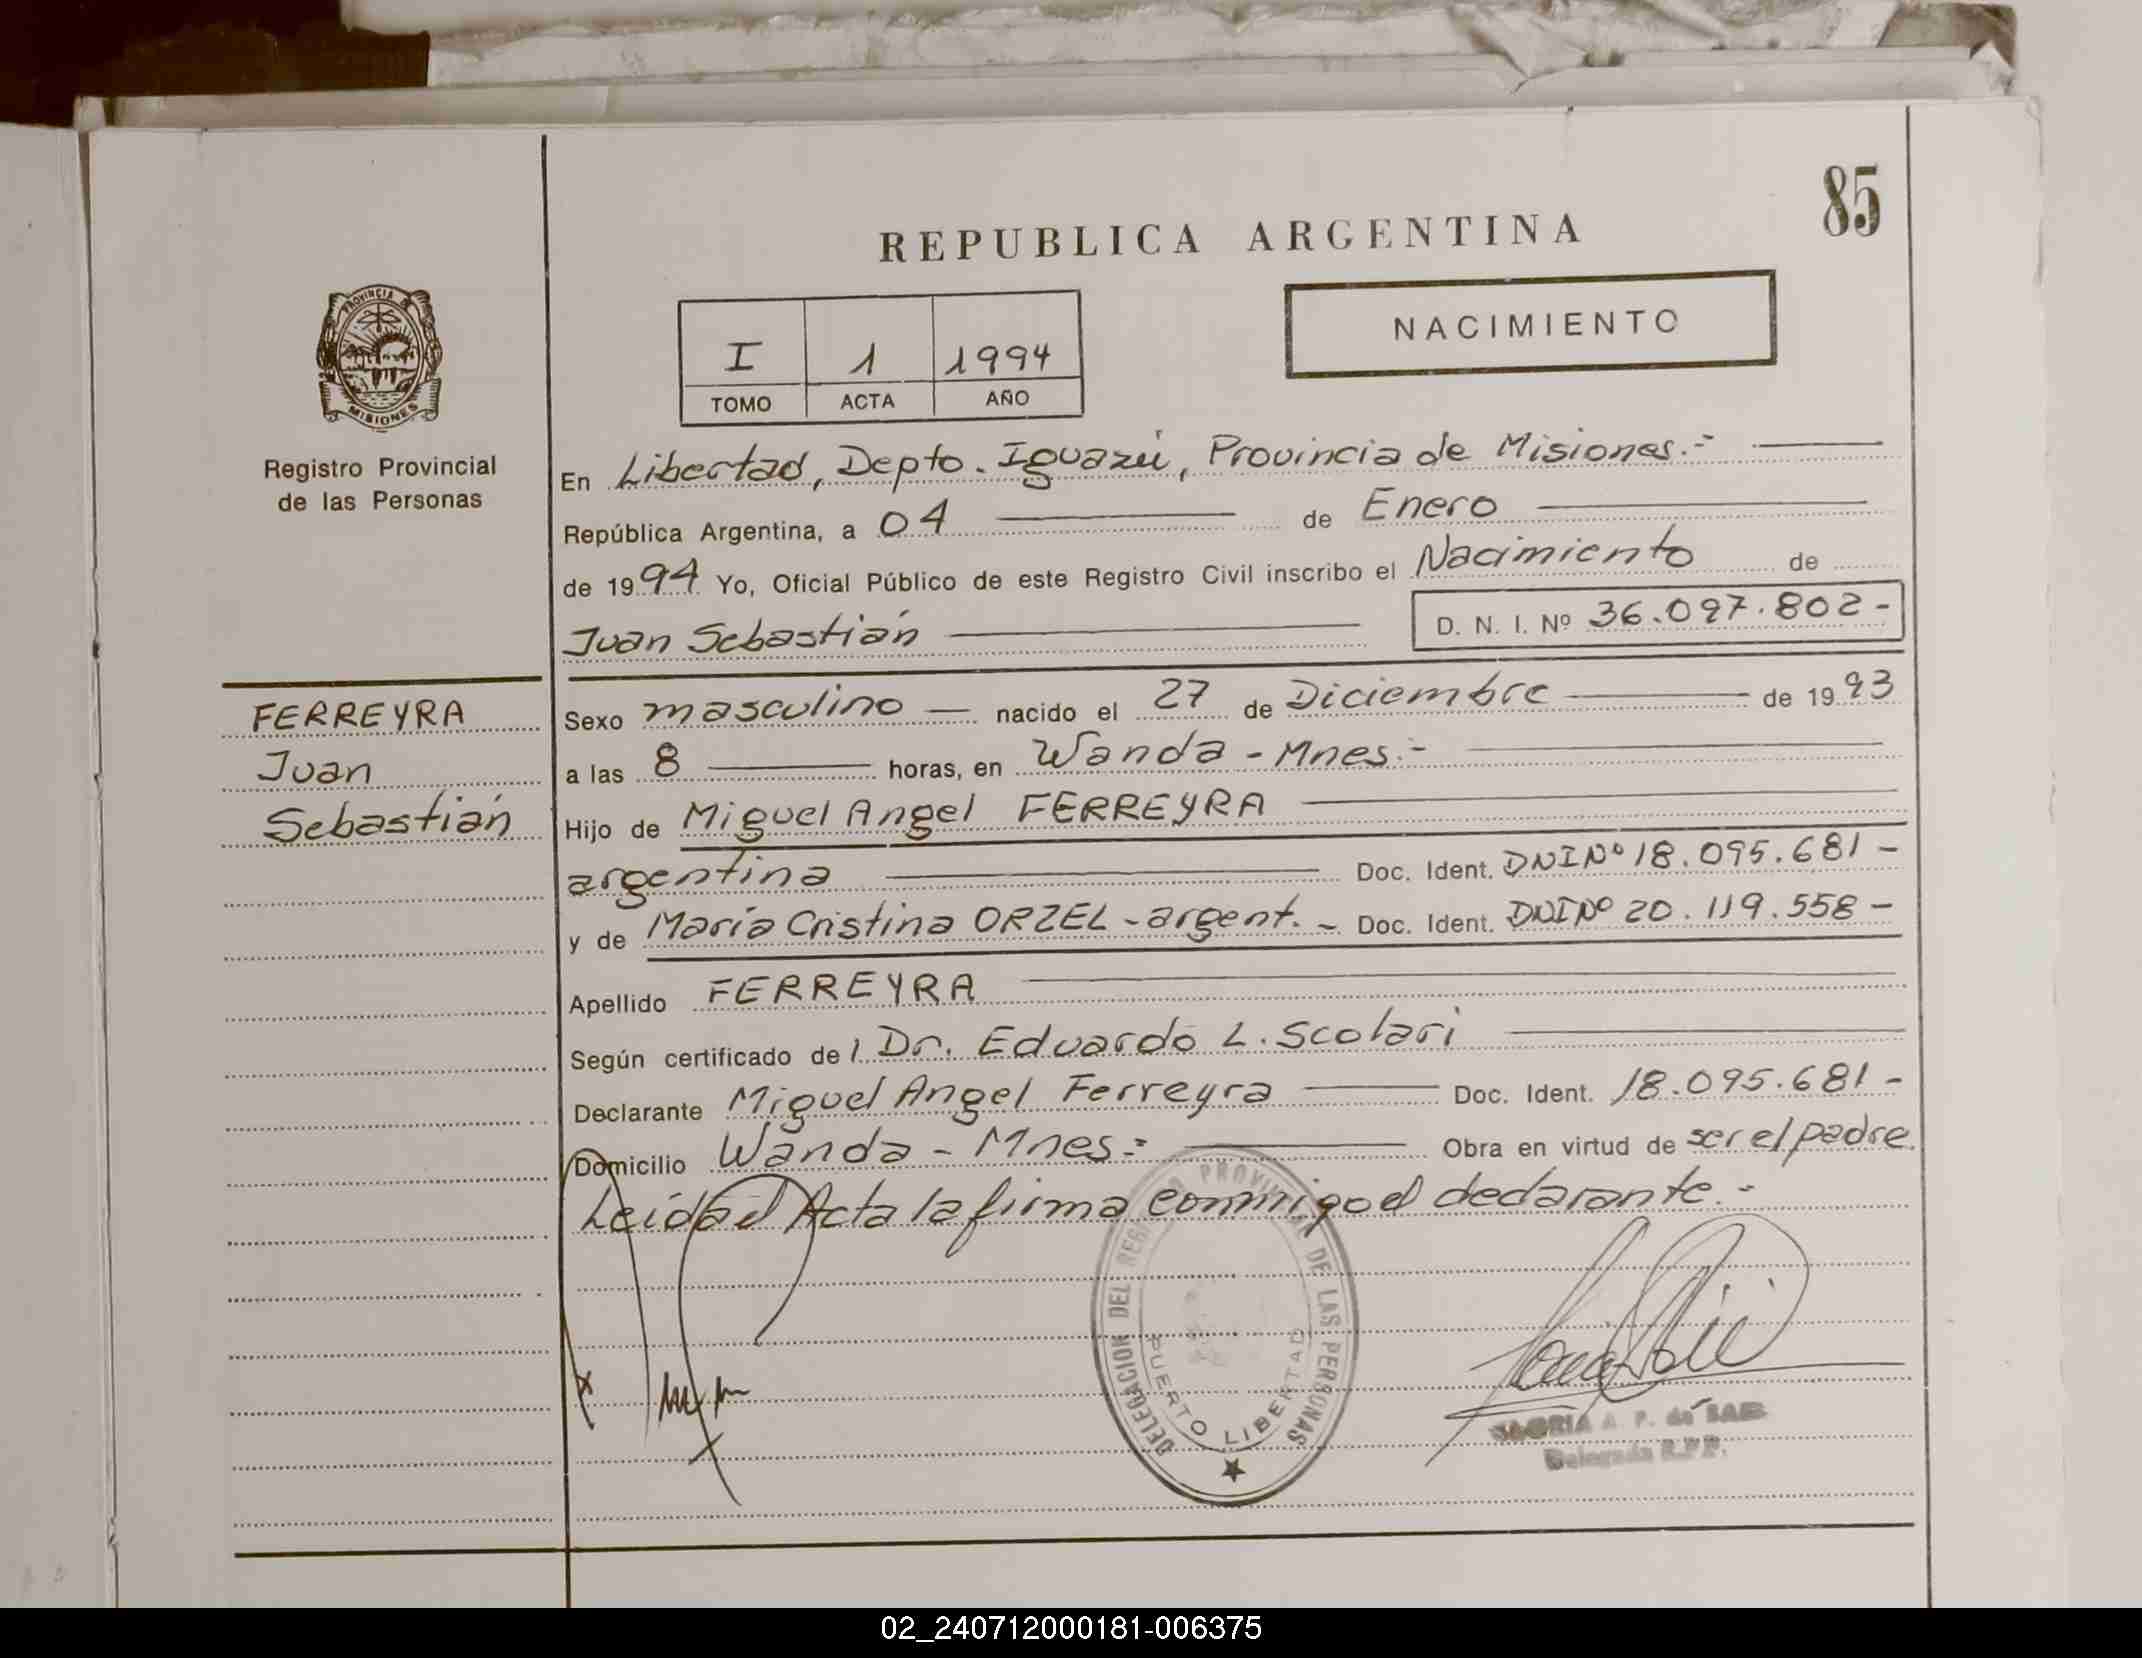 85
REPUBLICA ARGENTINA
NACIMIENTO
I 1 1994
TOMO ACTA AÑO
PROVINCIA DE
MISIONES
Registro Provincial
de las Personas
En Libertad, Depto. Iguazú, Provincia de Misiones.-
República Argentina, a 04 de Enero
de 1994 Yo, Oficial Público de este Registro Civil inscribo el Nacimiento de
Juan Sebastián D. N. I. Nº 36.097.802-
FERREYRA
Juan
Sebastián
Sexo masculino nacido el 27 de Diciembre de 1993
a las 8 horas, en Wanda - Mnes.-
Hijo de Miguel Angel FERREYRA
argentina Doc. Ident. DNI Nº 18.095.681-
y de María Cristina ORZEL - argent. - Doc. Ident. DNI Nº 20.119.558-
Apellido FERREYRA
Según certificado del Dr. Eduardo L. Scolari
Declarante Miguel Angel Ferreyra Doc. Ident. 18.095.681-
Domicilio Wanda - Mnes.- Obra en virtud de ser el padre.
Leída el Acta la firma conmigo el declarante.-
DELEGACION DEL REGISTRO PROVINCIAL DE LAS PERSONAS
PUERTO LIBERTAD
A. P. de
Delegada R.P.P.
02_240712000181-006375